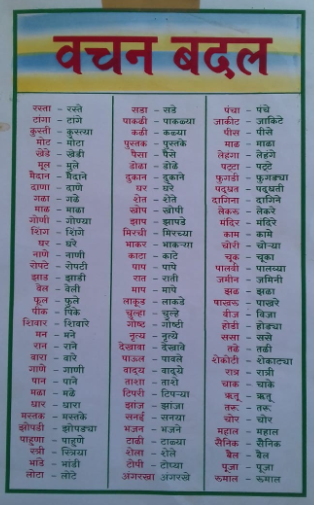 वचन बदल
रस्ता - रस्ते
टांगा - टांगे
कुस्ती - कुस्त्या
मोट - मोटा
खेडे - खेडी
मूल - मुले
मैदान - मैदाने
दाणा - दाणे
गळा - गळे
माळ - माळा
गोणी - गोण्या
शिंग - शिंगे
घर - घरे
नाणे - नाणी
रोपटे - रोपटी
झाड - झाडी
वेल - वेली
फूल - फुले
पीक - पिके
शिवार - शिवारे
मन - मने
रान - राने
वारा - वारे
गाणे - गाणी
पान - पाने
मळा - मळे
धार - धारा
मस्तक - मस्तके
झोपडी - झोपड्या
पाहुणा - पाहुणे
स्त्री - स्त्रिया
भांडे - भांडी
लोटा - लोटे
सडा - सडे
पाकळी - पाकळ्या
कळी - कळ्या
पुस्तक - पुस्तके
पैसा - पैसे
डोळा - डोळे
दुकान - दुकाने
घर - घरे
शेत - शेते
खोप - खोपी
झाप - झापडे
मिरची - मिरच्या
भाकर - भाकऱ्या
काटा - काटे
पाप - पापे
रात - राती
माप - मापे
लाकूड - लाकडे
चुल्हा - चुल्हे
गोष्ट - गोष्टी
नृत्य - नृत्ये
देखावा - देखावे
पाऊल - पावले
वाद्य - वाद्ये
ताशा - ताशे
टिपरी - टिपऱ्या
झांज - झांजा
सनई - सनया
भजन - भजने
टाळी - टाळ्या
शेला - शेले
टोपी - टोप्या
अंगरखा - अंगरखे
पंचा - पंचे
जाकीट - जाकिटे
पीस - पीसे
माळ - माळा
लेहंगा - लेहंगे
पट्टा - पट्टे
फुगडी - फुगड्या
पद्धत - पद्धती
दागिना - दागिने
लेकरू - लेकरे
मंदिर - मंदिरे
काम - कामे
चोरी - चोऱ्या
चूक - चूका
पालवी - पालव्या
जमीन - जमिनी
झळ - झळा
पाखरू - पाखरे
वीज - विजा
होडी - होड्या
ससा - ससे
तळे - तळी
शेकोटी - शेकोट्या
रात्र - रात्री
चाक - चाके
ऋतू - ऋतू
तरू - तरू
चोर - चोर
महाल - महाल
सैनिक - सैनिक
बैल - बैल
पूजा - पूजा
रुमाल - रुमाल